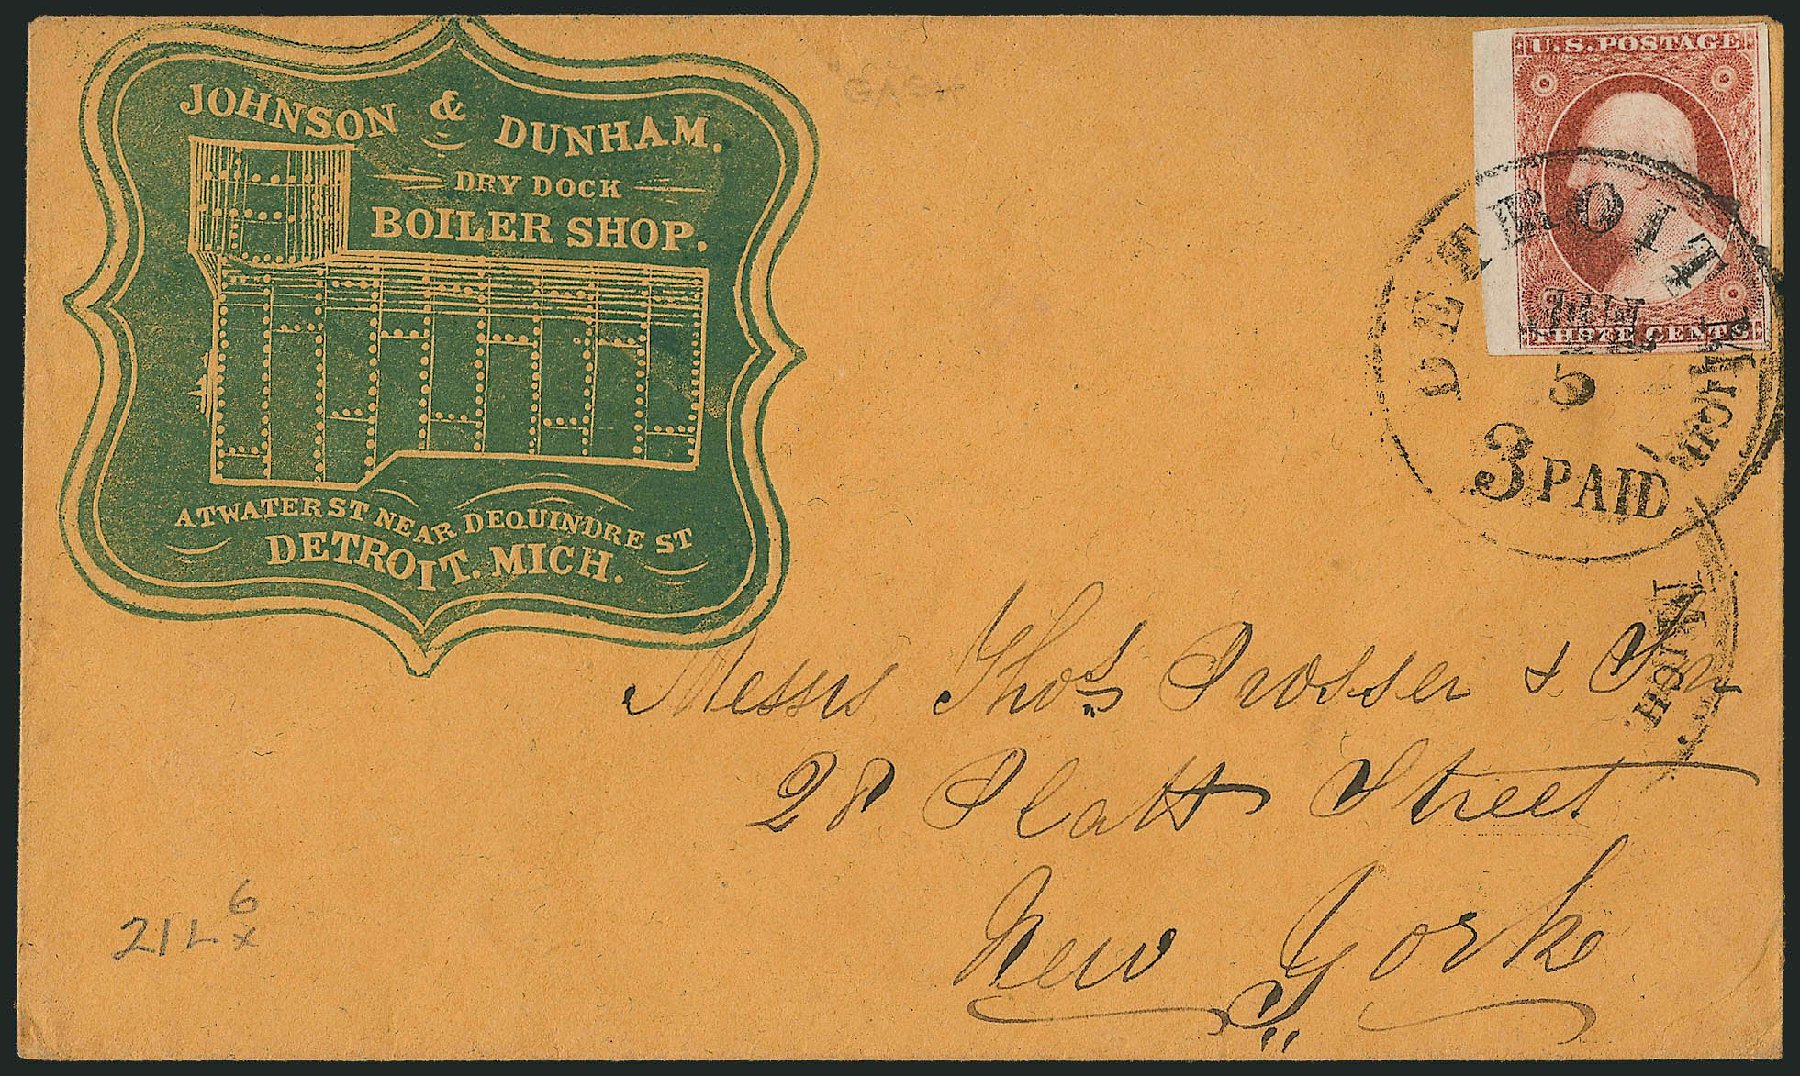 JOHNSON & DUNHAM.
DRY DOCK
BOILER SHOP.
ATWATER ST NEAR DEQUINDRE ST
DETROIT. MICH.
U.S. POSTAGE
THREE CENTS
DETROIT
MICH.
5
3 PAID
MICH.
Messrs Thos Prosser & Son
28 Platt Street
New York
21L 6
x